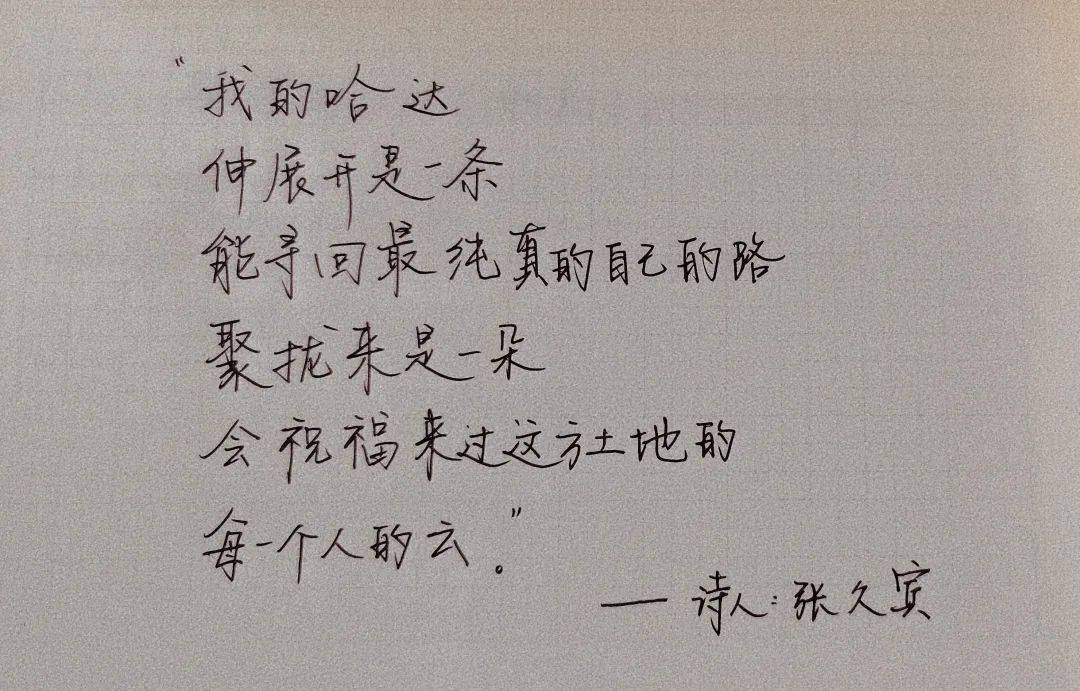 “我的哈达
伸展开是一条
能寻回最纯真的自己的路
聚拢来是一朵
会祝福来过这方土地的
每一个人的云。”
——诗人：张久宾